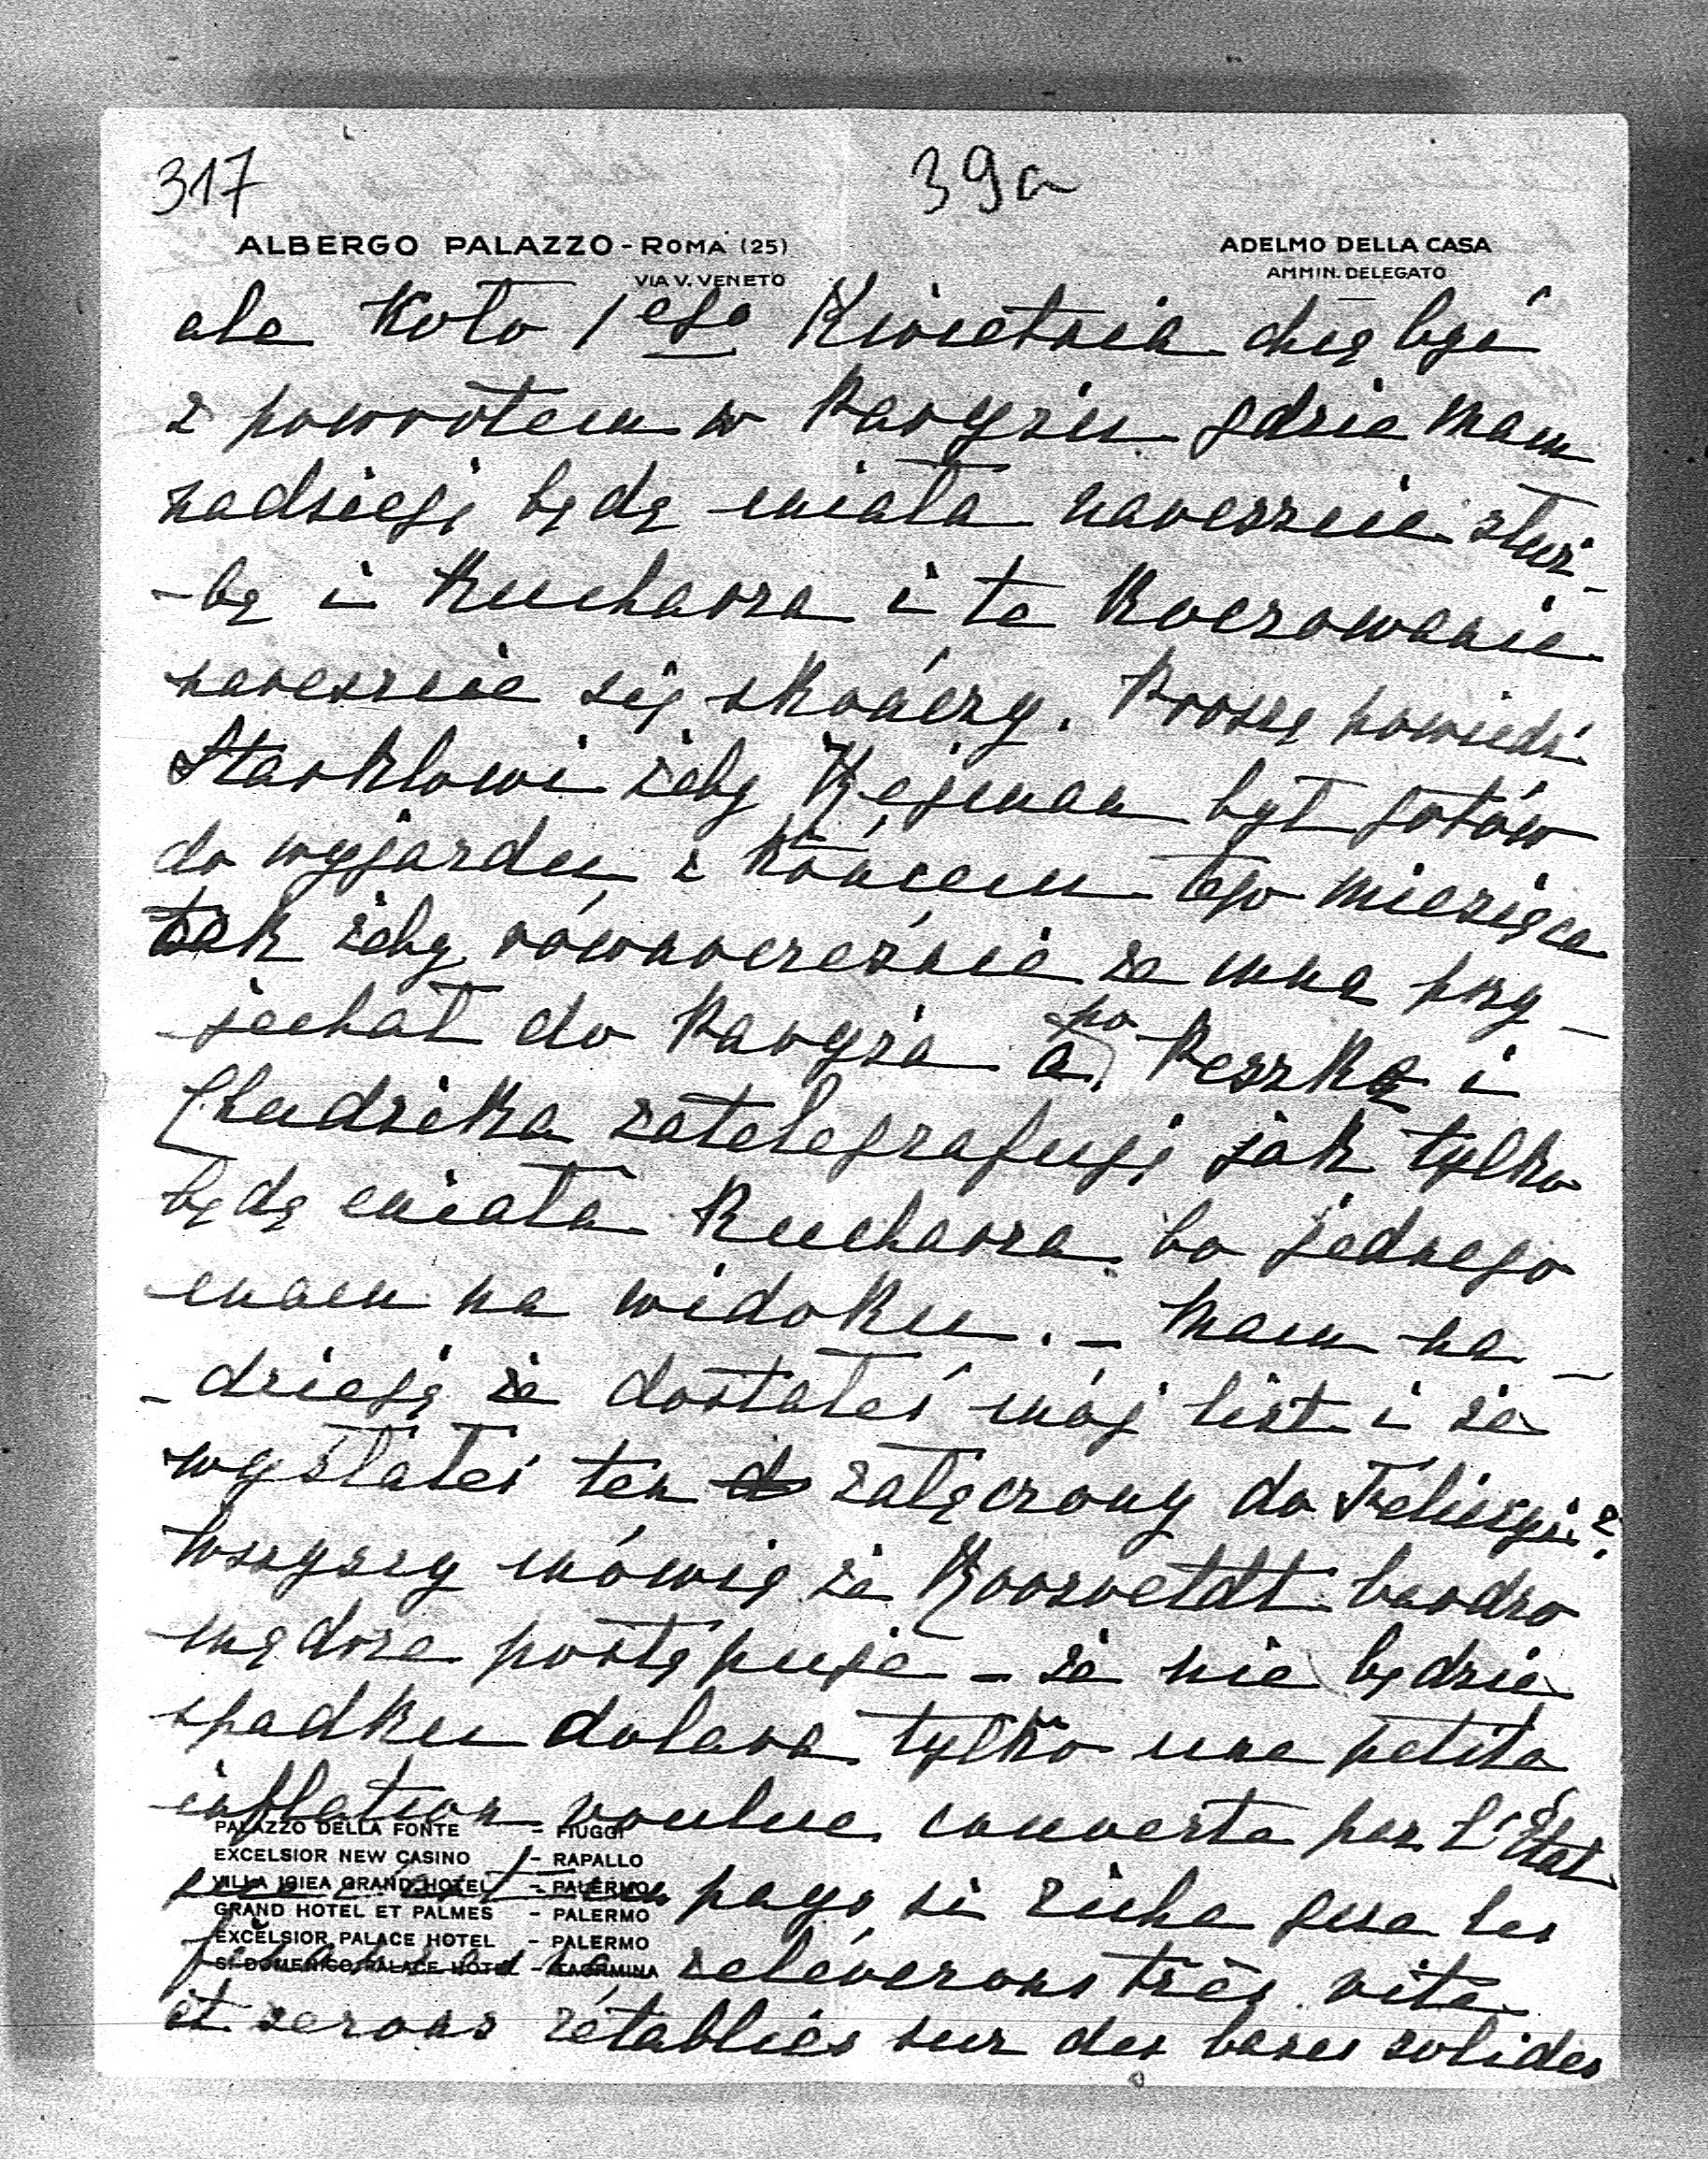 317
39a
ALBERGO PALAZZO - ROMA (25)
VIA V. VENETO
ADELMO DELLA CASA
AMMIN. DELEGATO
ale koło 1ego Kwietnia chcę być
z powrotem w Paryżu gdzie mam
nadzieję będę miała nareszcie służ-
-bę i kucharza i te koczowanie
nareszcie się skończy. Proszę powiedź
żeby był gotów
do wyjazdu z końcem tego miesiąca
tak żeby równocześnie ze mną przy-
-jechał do Paryża a po Peszkę i
Chudzika zatelegrafuję jak tylko
będę miała kucharza bo jednego
mam na widoku. - Mam na-
-dzieję że dostałeś mój list i że
wysłałeś ten załączony do ?
Wszyscy mówią że Roosveldt bardzo
mądrze postępuje - że nie będzie
spadku dolara tylko une petite
inflation voulue couverte par l'État
pays si riche que les
relèverons très vite
et serons rétablies sur des bases solides
PALAZZO DELLA FONTE - FIUGGI
EXCELSIOR NEW CASINO - RAPALLO
VILLA IGIEA GRAND HOTEL - PALERMO
GRAND HOTEL ET PALMES - PALERMO
EXCELSIOR PALACE HOTEL - PALERMO
S. DOMENICO PALACE HOTEL - TAORMINA